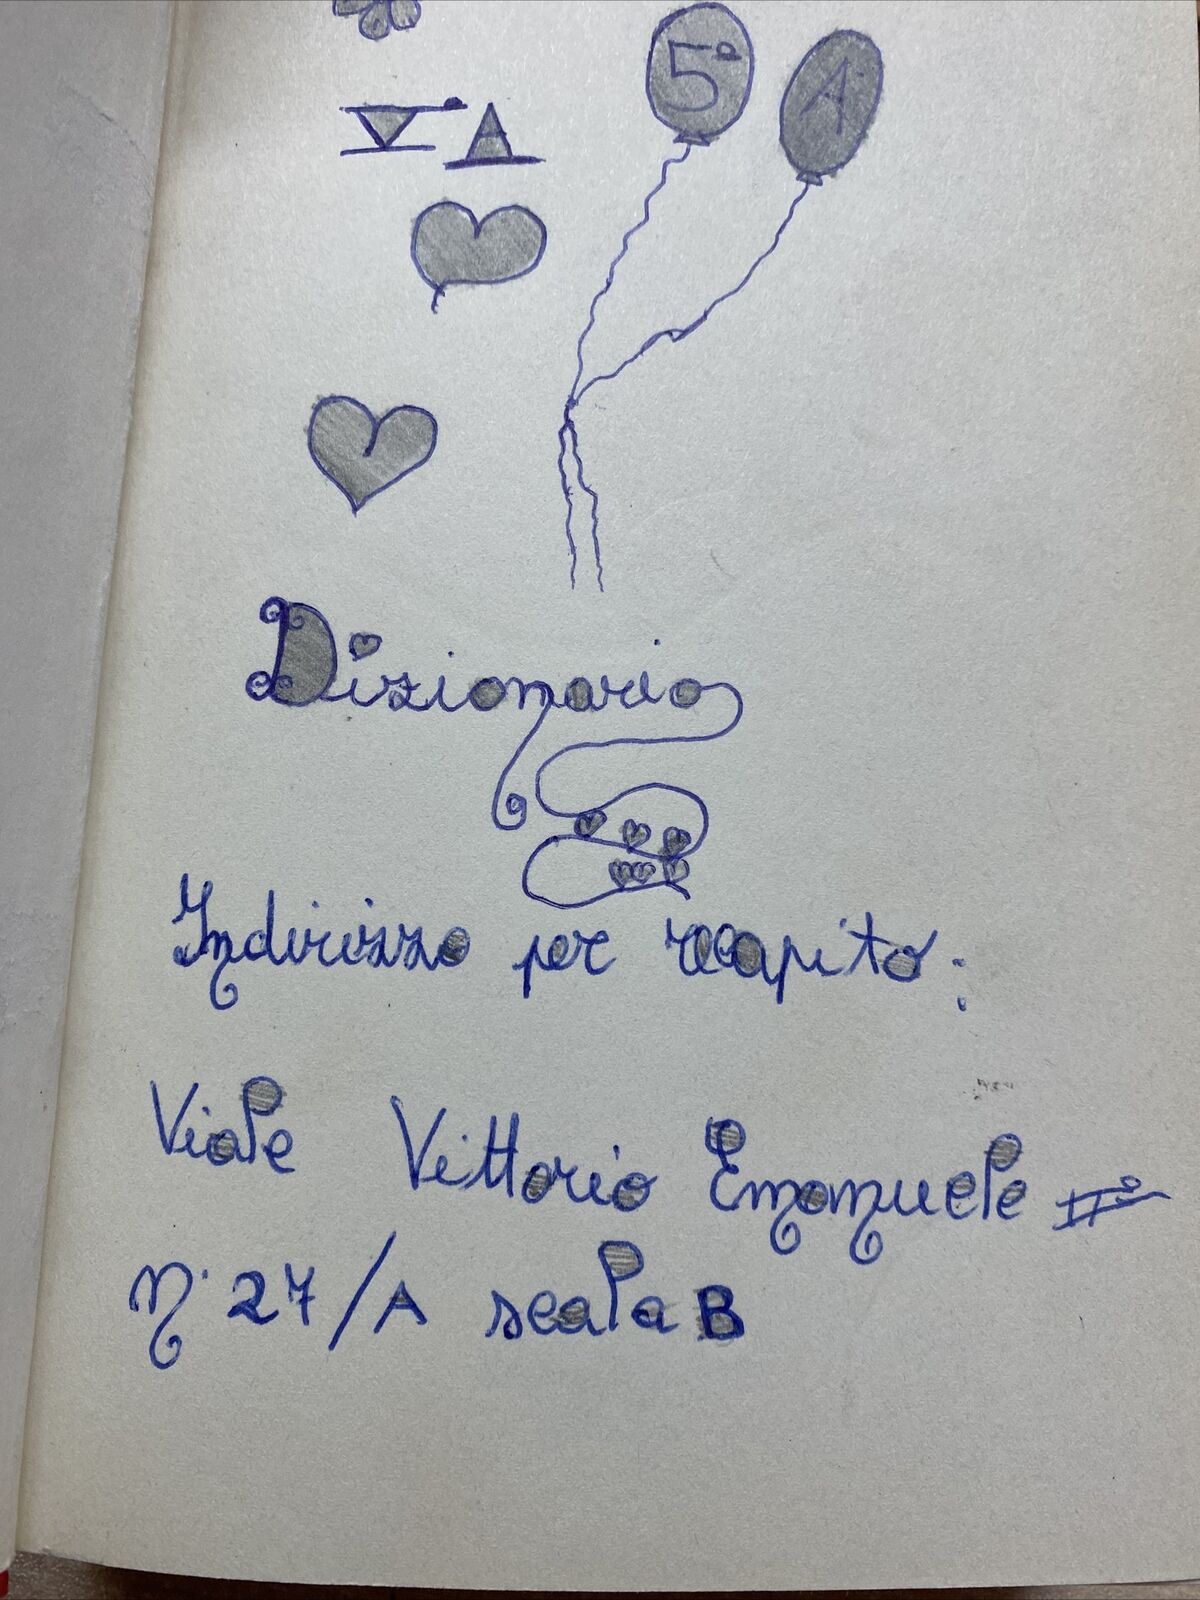 5° A
V A
Dizionario
Indirizzo per recapito:
Viale Vittorio Emanuele
N. 27/A scala B